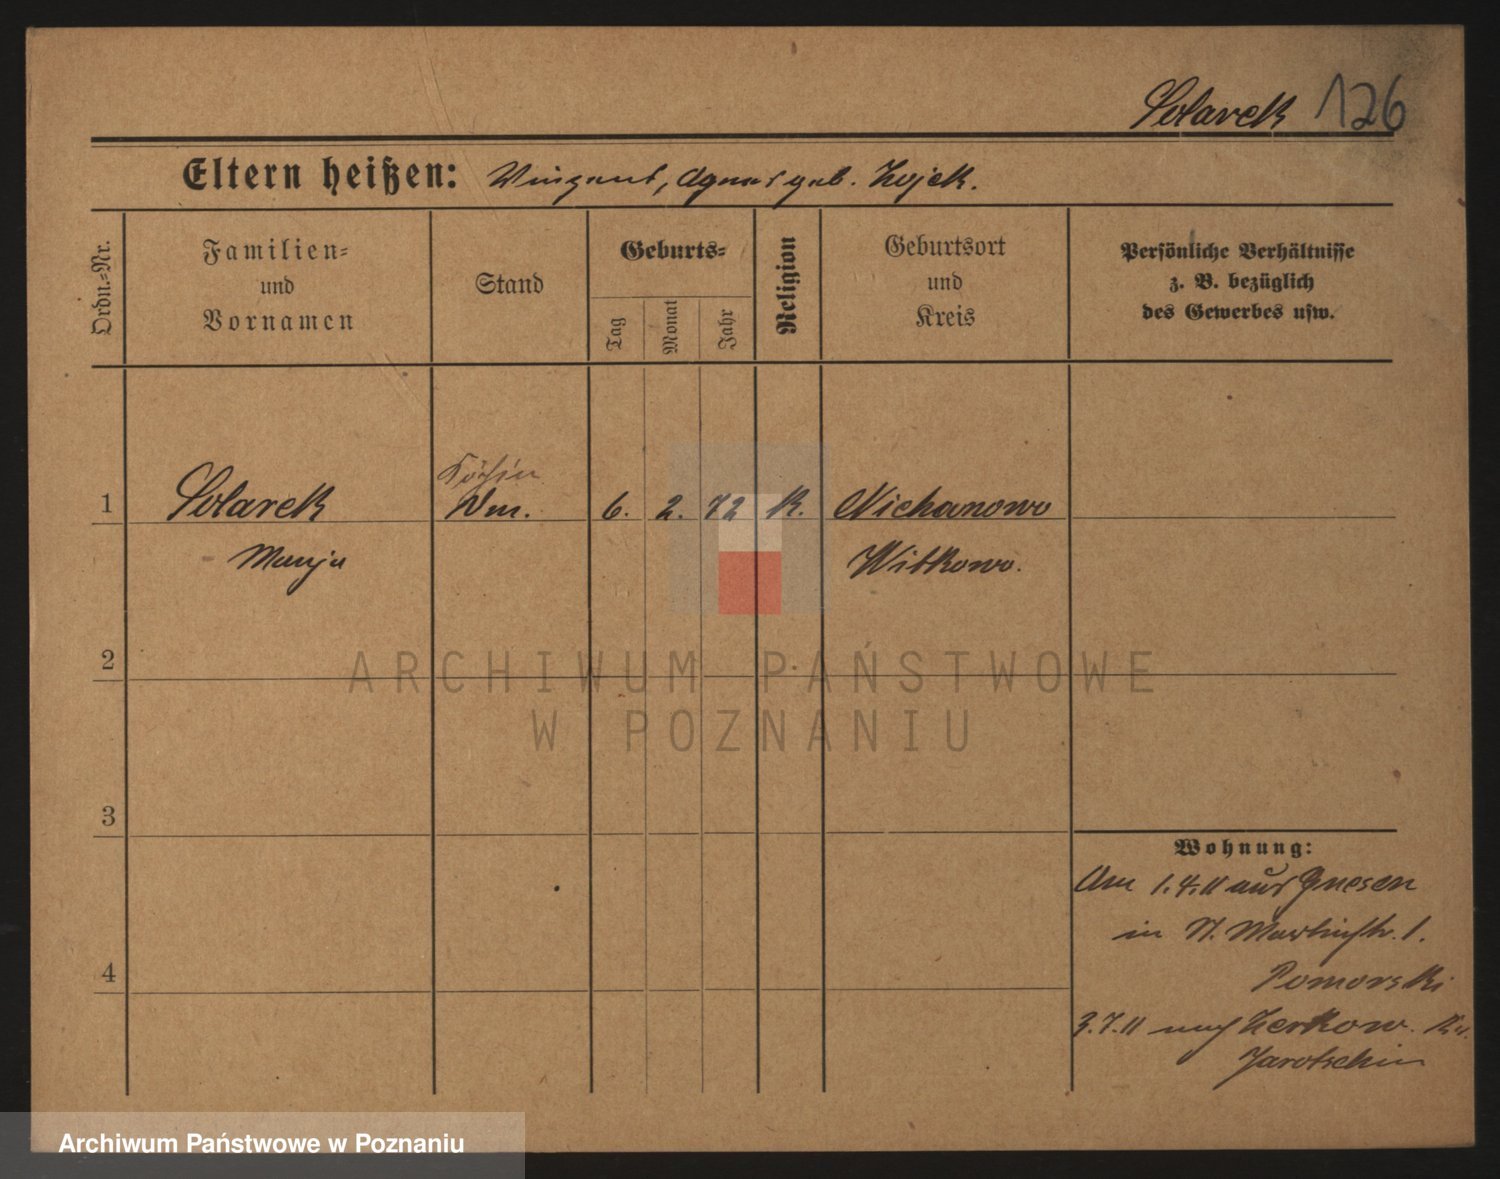 Solarek 126
Eltern heißen: Vinzent, Agnes geb. Zujek.
Ordn.-Nr.
Familien-
und
Vornamen
Stand
Geburts-
Tag
Monat
Jahr
Religion
Geburtsort
und
Kreis
Persönliche Verhältnisse
z. B. bezüglich
des Gewerbes usw.
Köchin
1 Solarek Wwe. 6. 2. 72 K. Nichanowo
Witkowo.
2
ARCHIWUM PAŃSTWOWE
W POZNANIU
3
Wohnung:
Am 1.4.11 aus Gnesen
in St. Martinstr. 1.
4
Pomorski
3.7.11 nach Zerkow. Kr.
Jarotschin
Archiwum Państwowe w Poznaniu